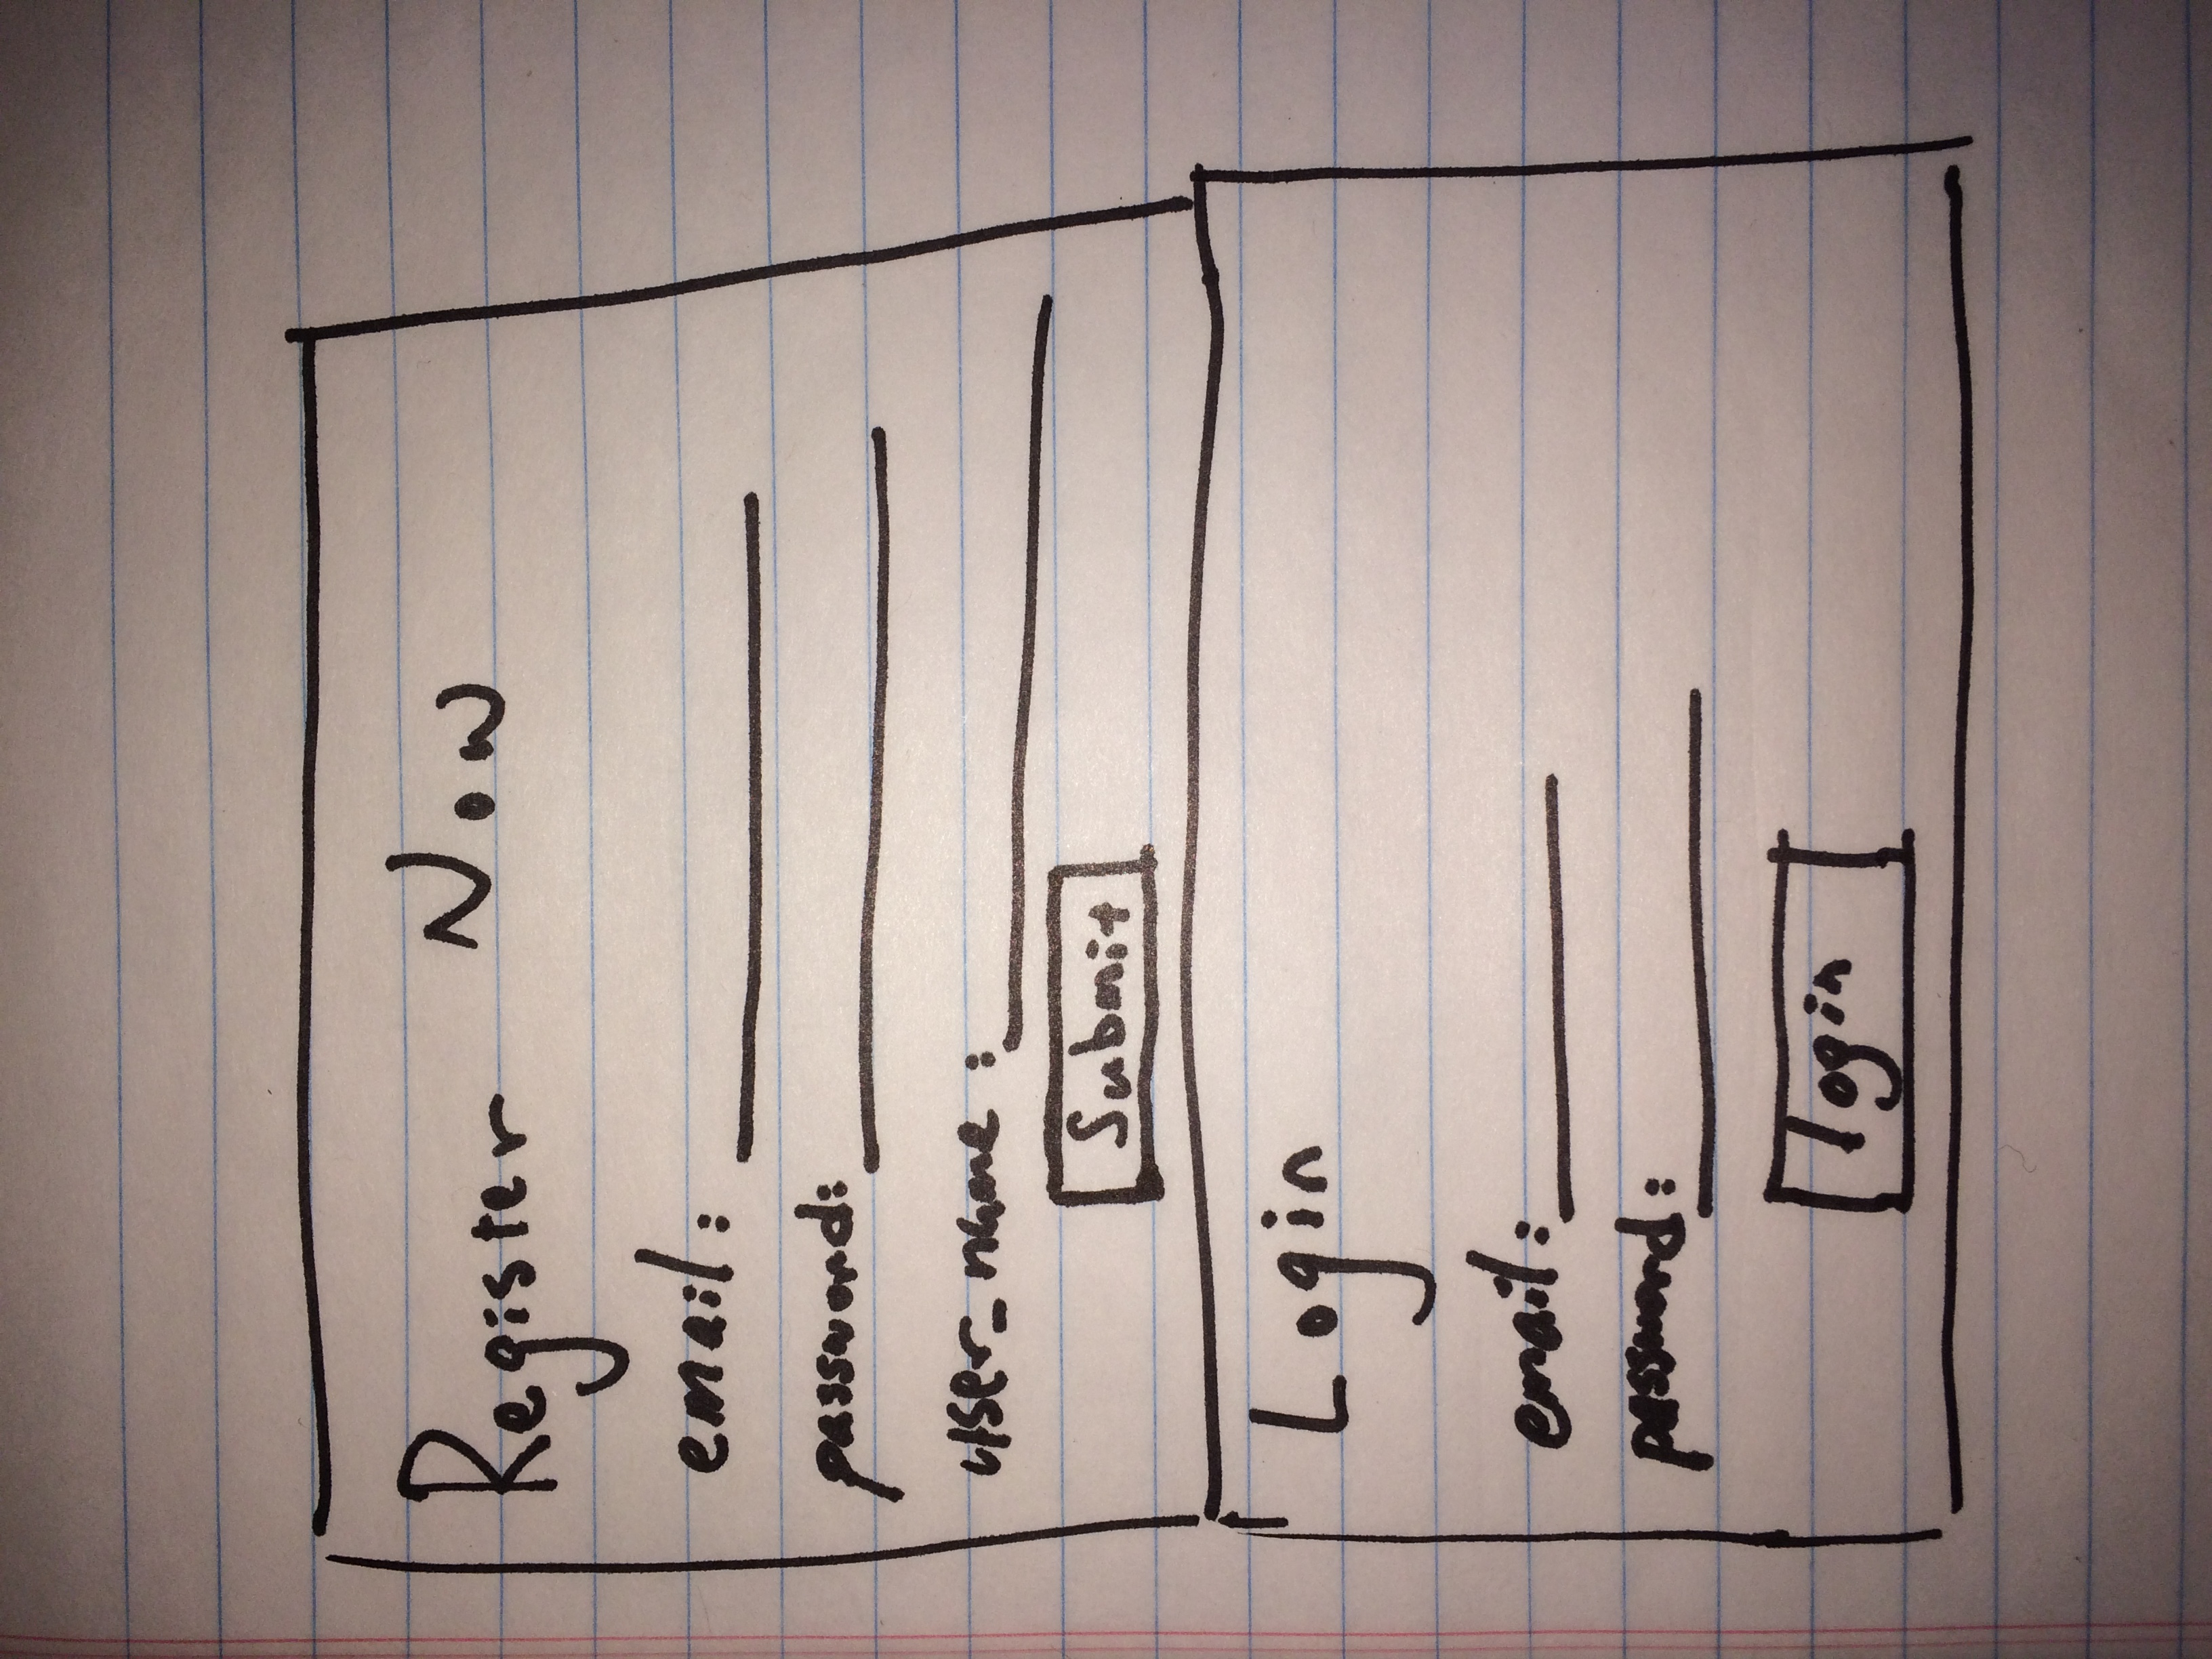 Register Now
email:
password:
user_name:
Submit
Login
email:
password:
login